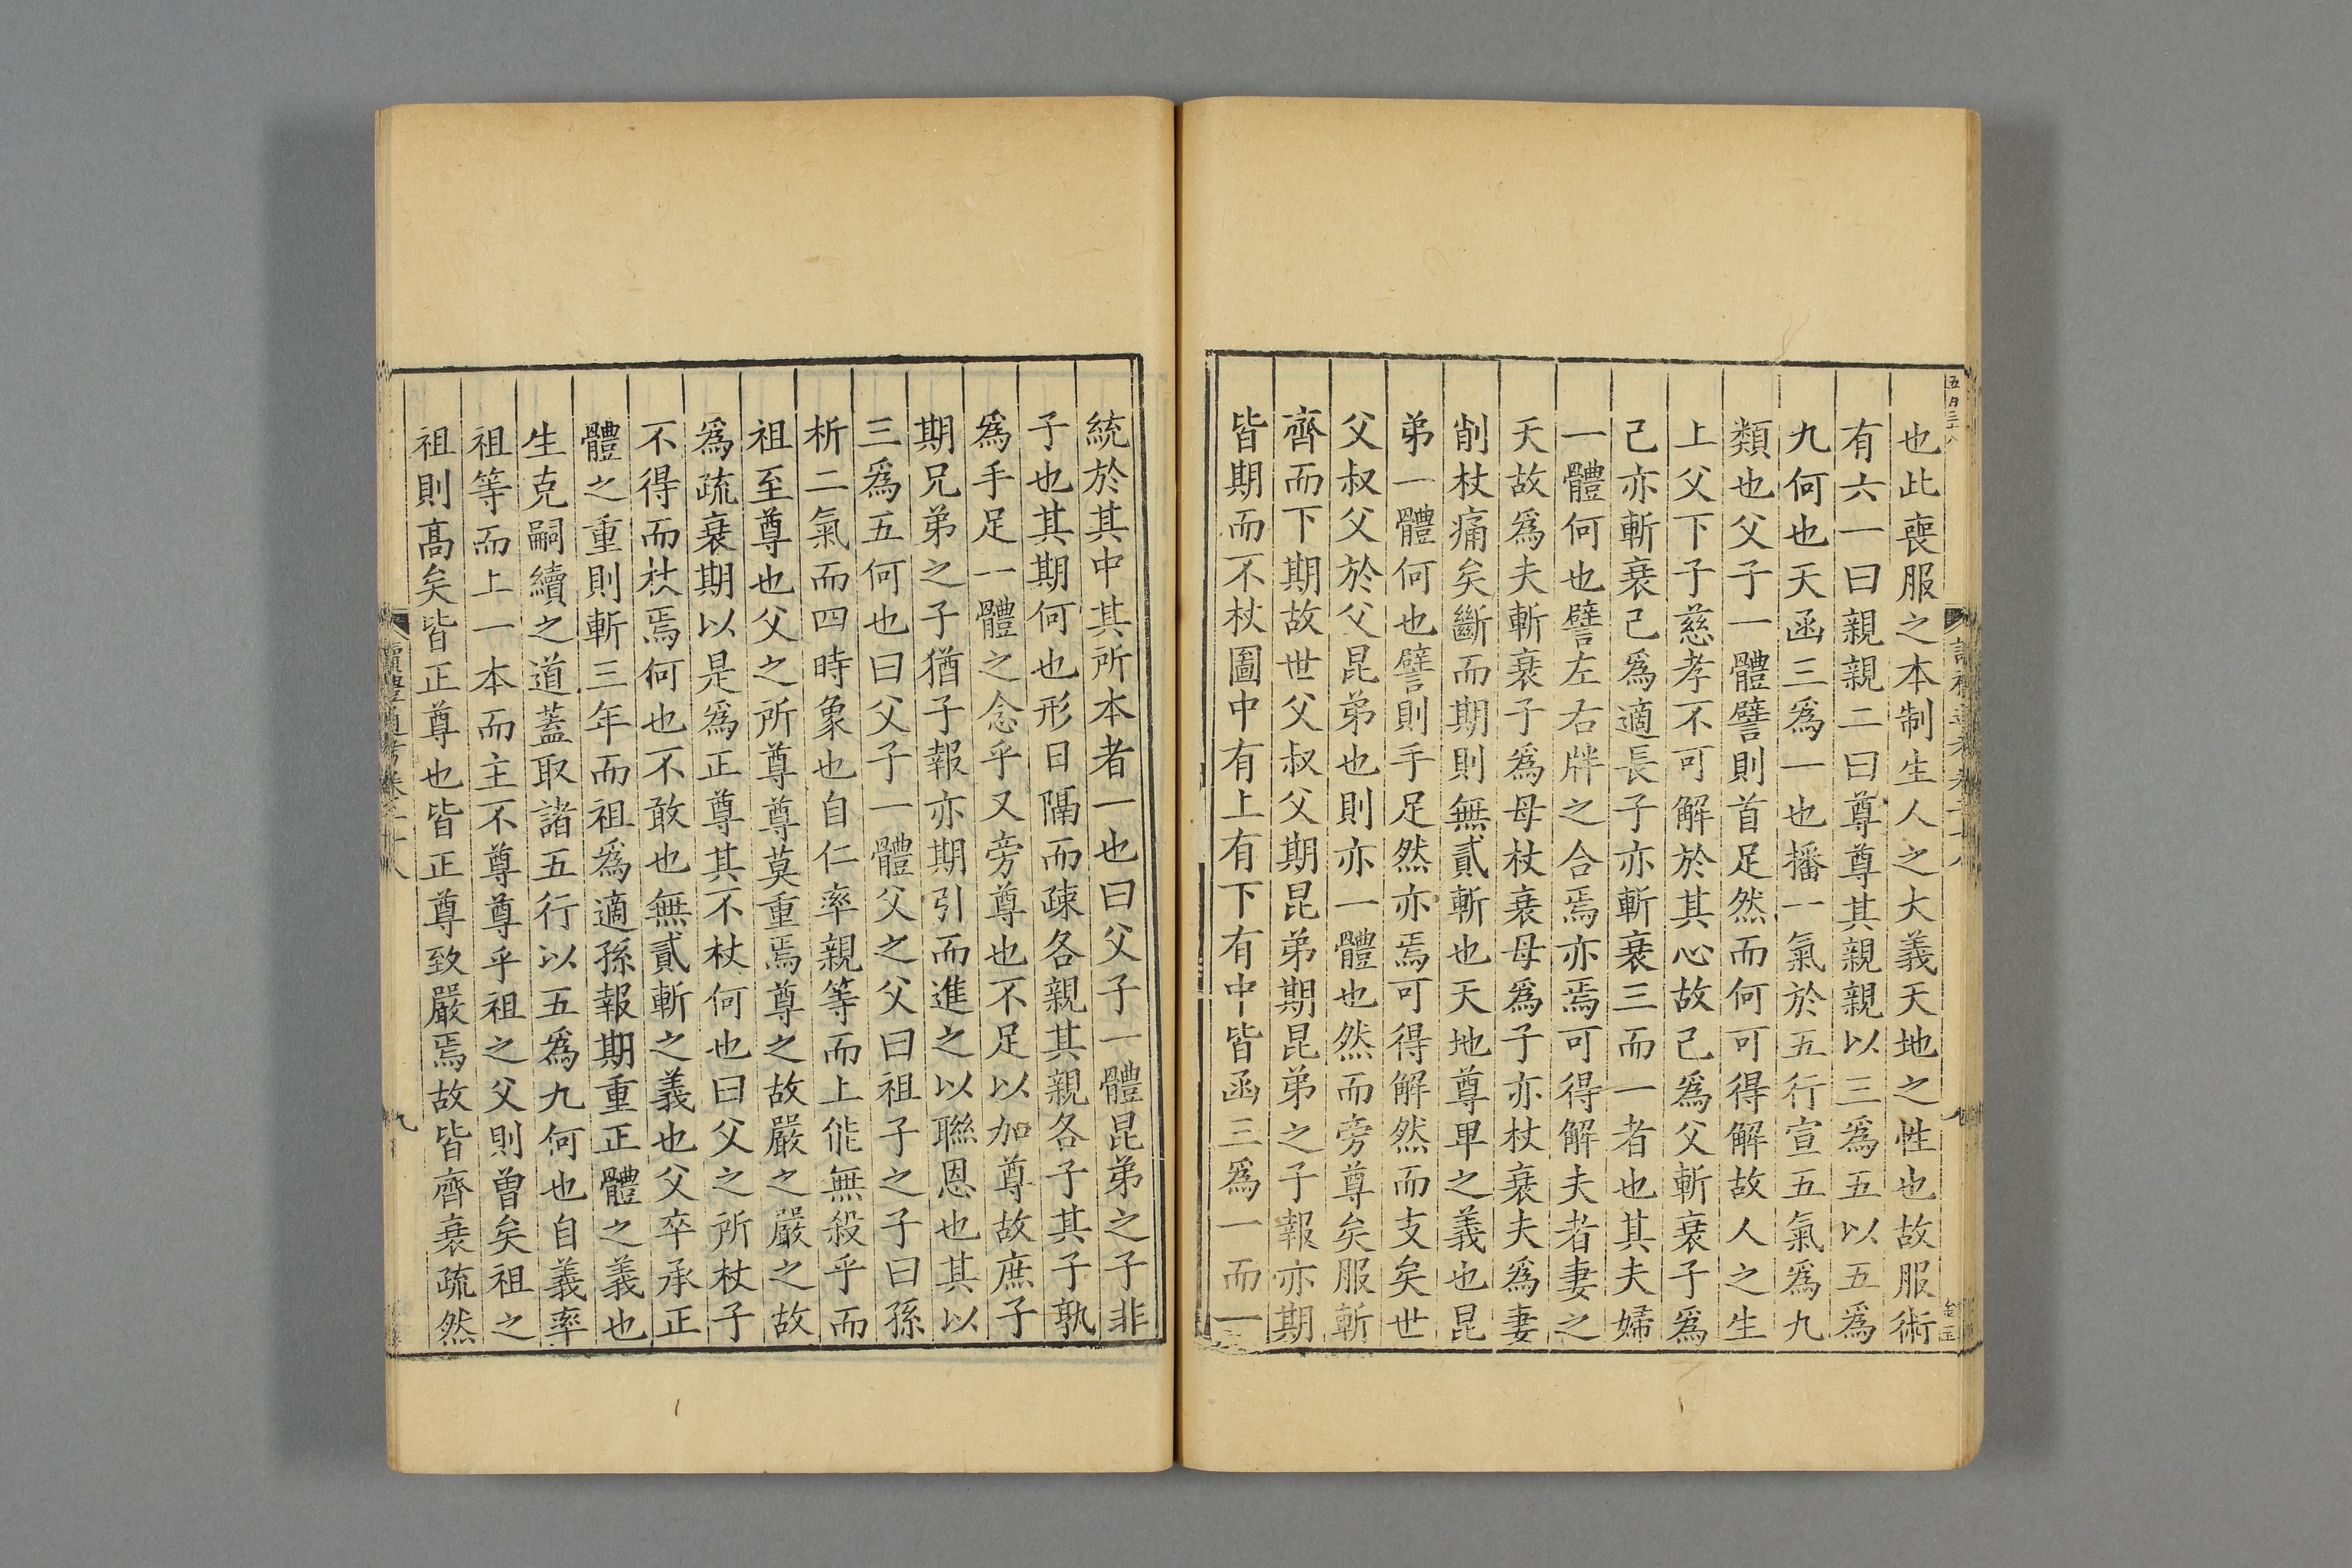 也此喪服之本制生人之大義天地之性也故服術
有六一曰親親二曰尊尊其親親以三爲五以五爲
九何也天函三爲一也播一氣於五行宣五氣爲九
類也父子一體譬則首足然而何可得解故人之生
上父下子慈孝不可解於其心故己爲父斬衰子爲
己亦斬衰己爲適長子亦斬衰三而一者也其夫婦
一體何也譬左右牉之合焉亦焉可得解夫者妻之
天故爲夫斬衰子爲母杖衰母爲子亦杖衰夫爲妻
削杖痛矣斷而期則無貳斬也天地尊卑之義也昆
弟一體何也譬則手足然亦焉可得解然而支矣世
父叔父於父昆弟也則亦一體也然而旁尊矣服斬
齊而下期故世父叔父期昆弟期昆弟之子報亦期
皆期而不杖圖中有上有下有中皆函三爲一而一
統於其中其所本者一也曰父子一體昆弟之子非
子也其期何也形日隔而疎各親其親各子其子孰
爲手足一體之念乎又旁尊也不足以加尊故庶子
期兄弟之子猶子報亦期引而進之以聯恩也其以
三爲五何也曰父子一體父之父曰祖子之子曰孫
析二氣而四時象也自仁率親等而上能無殺乎而
祖至尊也父之所尊尊莫重焉尊之故嚴之嚴之故
爲疏衰期以是爲正尊其不杖何也曰父之所杖子
不得而杖焉何也不敢也無貳斬之義也父卒承正
體之重則斬三年而祖爲適孫報期重正體之義也
生克嗣續之道蓋取諸五行以五爲九何也自義率
祖等而上一本而主不尊尊乎祖之父則曾矣祖之
祖則高矣皆正尊也皆正尊致嚴焉故皆齊衰疏然
讀禮通考卷二十八
九